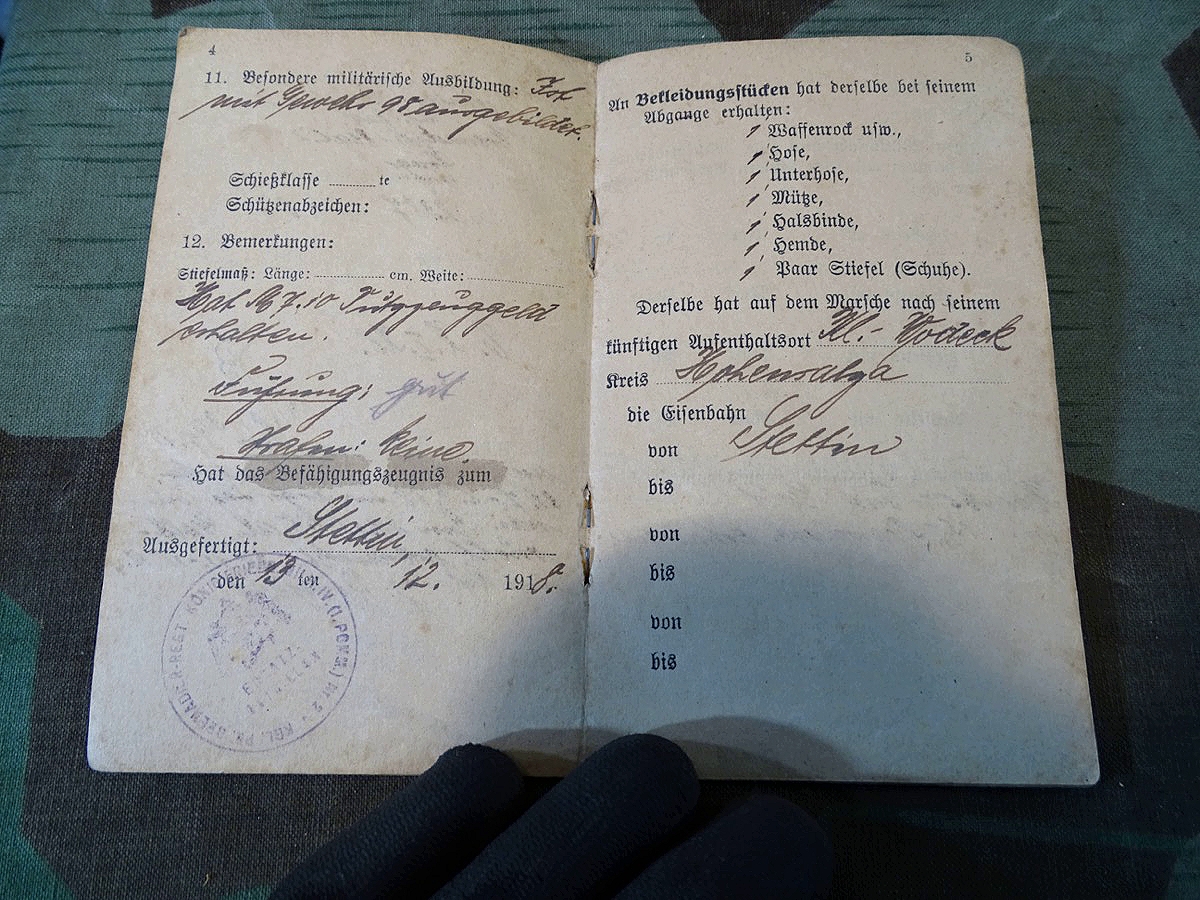 4
11. Besondere militärische Ausbildung: Ist
mit Gewehr 98 ausgebildet.
Schießklasse ............ te
Schützenabzeichen:
12. Bemerkungen:
Stiefelmaß: Länge: ............ cm. Weite: ............
Hat M 7.10 Putzzeuggeld
erhalten.
Führung: gut
Strafen: keine.
Hat das Befähigungszeugnis zum
Ausgefertigt: Stettin,
den 13 ten 12. 1918.
KGL. PR. GRENADIER-REGT. KÖNIG FRIEDRICH WILH. IV. (1. POMM.) Nr 2
5
An Bekleidungsstücken hat derselbe bei seinem
Abgange erhalten:
1 Waffenrock usw.,
1 Hose,
1 Unterhose,
1 Mütze,
1 Halsbinde,
1 Hemde,
1 Paar Stiefel (Schuhe).
Derselbe hat auf dem Marsche nach seinem
künftigen Aufenthaltsort Kl.- Wodeck
Kreis Hohensalza
die Eisenbahn
von Stettin
bis
von
bis
von
bis